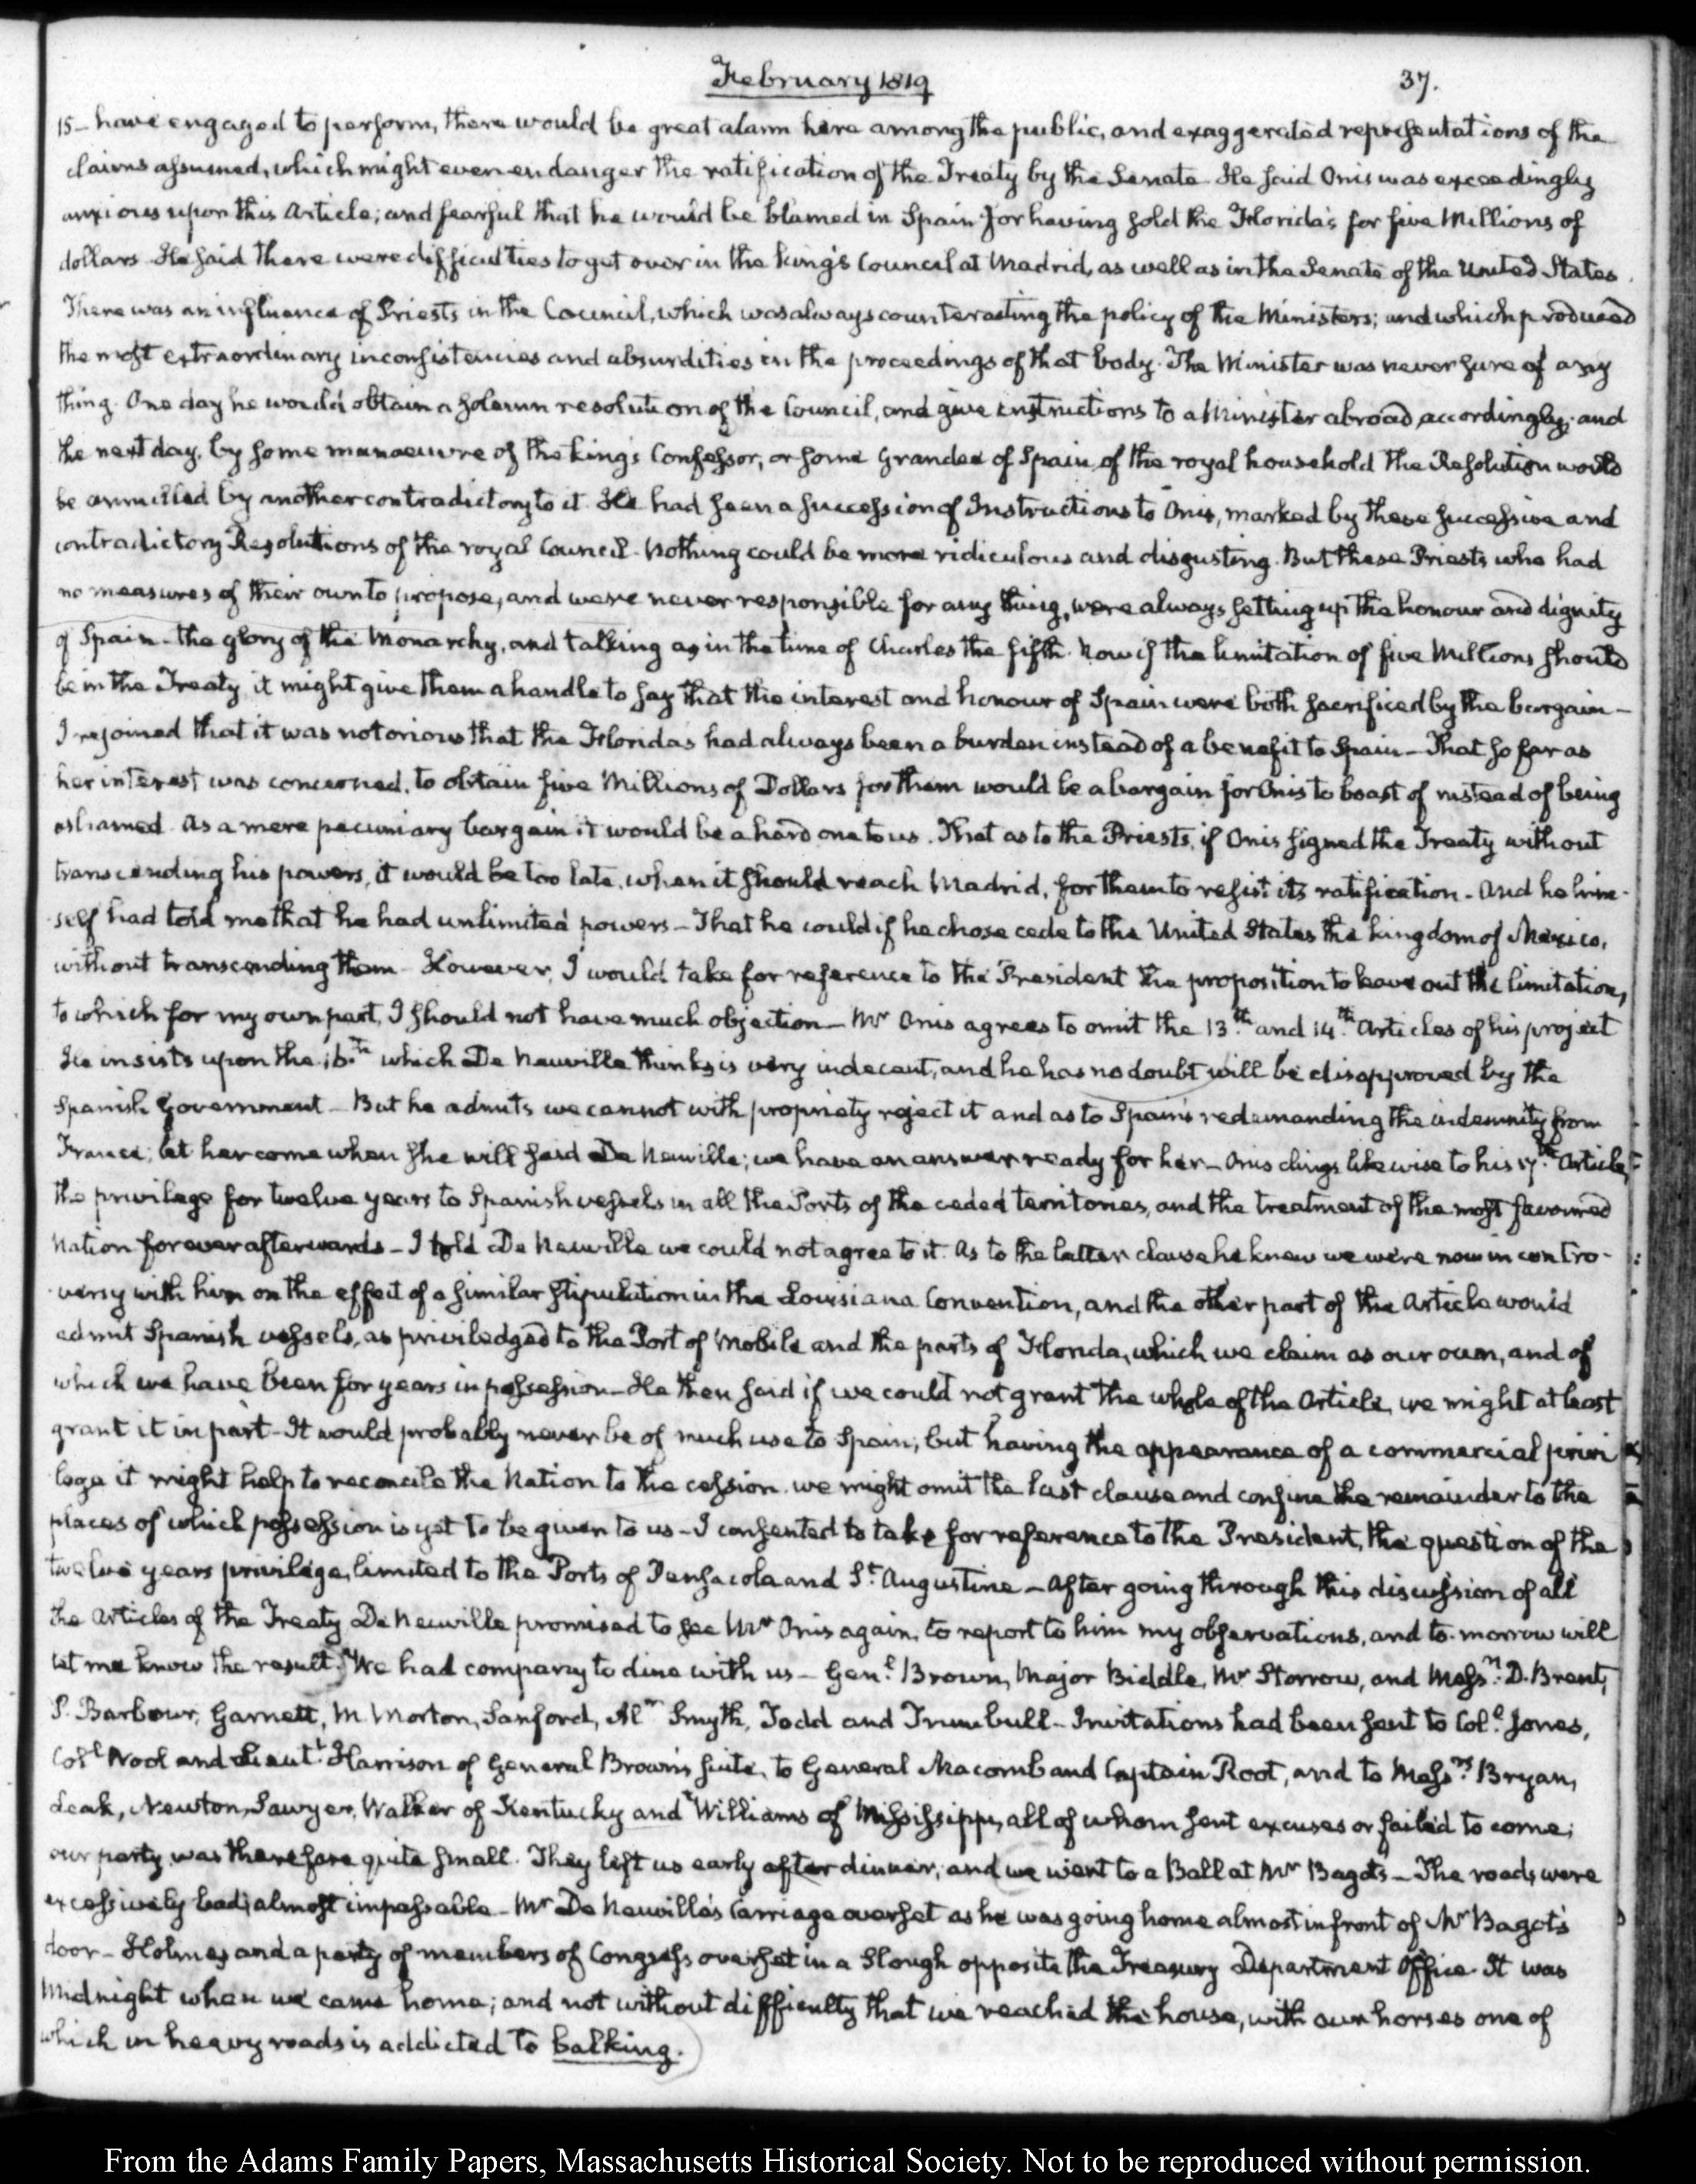 February 1819
37.
15- have engaged to perform, there would be great alarm here among the public, and exaggerated representations of the
claims assumed, which might even endanger the ratification of the Treaty by the Senate He said Onis was exceedingly
anxious upon this Article; and fearful that he would be blamed in Spain for having sold the Florida's for five Millions of
dollars. He said there were difficulties to get over in the king's Council at Madrid, as well as in the Senate of the United States.
There was an influence of Priests in the Council, which was always counteracting the policy of the Ministers; and which produced
the most extraordinary inconsistencies and absurdities in the proceedings of that body. The Minister was never sure of any
thing. One day he would obtain a solemn resolution of the Council, and give instructions to a Minister abroad accordingly; and
the next day, by some manoeuvre of the king's Confessor, or some Grandee of Spain, of the royal household the Resolution would
be annulled by another contradictory to it. He had seen a succession of Instructions to Onis, marked by these successive and
contradictory Resolutions of the royal Council. Nothing could be more ridiculous and disgusting. But these Priests who had
no measures of their own to propose, and were never responsible for any thing, were always setting up the honour and dignity
of Spain - the glory of the Monarchy, and talking as in the time of Charles the fifth. Now if the limitation of five Millions should
be in the Treaty, it might give them a handle to say that the interest and honour of Spain were both sacrificed by the bargain -
I rejoined that it was notorious that the Florida's had always been a burden instead of a benefit to Spain - That so far as
her interest was concerned, to obtain five Millions of Dollars for them would be a bargain for Onis to boast of instead of being
ashamed. As a mere pecuniary bargain it would be a hard one to us. That as to the Priests, if Onis signed the Treaty without
transcending his powers, it would be too late, when it should reach Madrid, for them to resist its ratification - And he him-
self had told me that he had unlimited powers - That he could if he chose cede to the United States the kingdom of Mexico,
without transcending them - However, I would take for reference to the President the proposition to leave out the limitation,
to which for my own part, I should not have much objection - Mr Onis agrees to omit the 13th and 14th Articles of his project
He insists upon the 16th which De Neuville thinks is very indecent, and he has no doubt will be disapproved by the
Spanish Government - But he admits we cannot with propriety reject it and as to Spain's redemanding the indemnity from
France; let her come when she will said De Neuville; we have an answer ready for her - Onis clings likewise to his 17th Article
the privilege for twelve years to Spanish vessels in all the Ports of the ceded territories, and the treatment of the most favoured
Nation forever afterwards - I told De Neuville we could not agree to it. As to the latter clause he knew we were now in contro-
versy with him on the effect of a similar stipulation in the Louisiana Convention, and the other part of the Article would
admit Spanish vessels, as priviledged to the Port of Mobile and the parts of Florida, which we claim as our own, and of
which we have been for years in possession - He then said if we could not grant the whole of the Article, we might at least
grant it in part - It would probably never be of much use to Spain; but having the appearance of a commercial privi
lege it might help to reconcile the Nation to the cession. we might omit the last clause and confine the remainder to the
places of which possession is yet to be given to us - I consented to take for reference to the President, the question of the
twelve years privilege, limited to the Ports of Pensacola and St Augustine - After going through this discussion of all
the Articles of the Treaty De Neuville promised to see Mr Onis again, to report to him my observations, and to-morrow will
let me know the result. We had company to dine with us - Genl Brown, Major Biddle, Mr Storrow, and Messrs D. Brent,
P. Barbour, Garnett, M. Morton, Sanford, Alr Smyth, Todd and Trumbull - Invitations had been sent to Coll Jones,
Coll Wool and Lieutt Harrison of General Brown's suite, to General Macomb and Captain Root, and to Messrs Bryan,
Leak, Newton, Sawyer, Walker of Kentucky and Williams of Mississippi, all of whom sent excuses or failed to come;
our party was therefore quite small. They left us early after dinner; and we went to a Ball at Mr Bagot's - The roads were
excessively bad; almost impassable - Mr De Neuville's Carriage overset as he was going home almost in front of Mr Bagot's
door - Holmes and a party of members of Congress overset in a Slough opposite the Treasury Department Office. It was
Midnight when we came home; and not without difficulty that we reached the house, with our horses one of
which in heavy roads is addicted to balking.
From the Adams Family Papers, Massachusetts Historical Society. Not to be reproduced without permission.